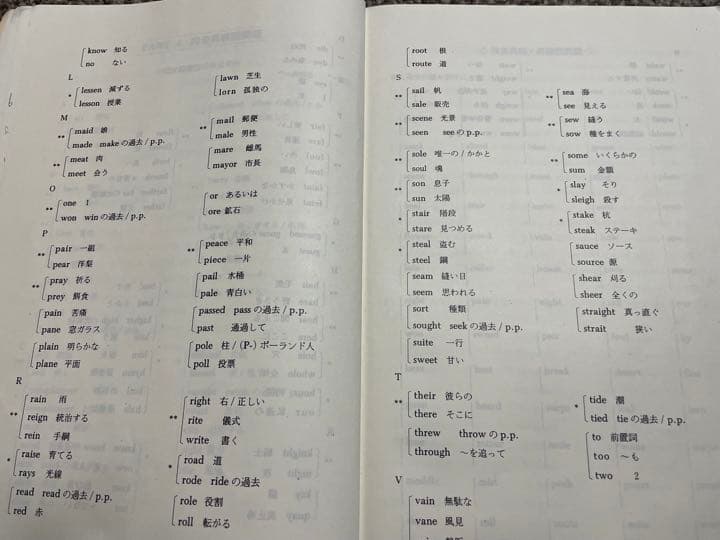 know 知る
no ない
L
* lessen 減ずる
lesson 授業
M
** maid 娘
made makeの過去/p.p.
** meat 肉
meet 会う
O
** one 1
won winの過去/p.p.
P
** pair 一組
pear 洋梨
** pray 祈る
prey 餌食
pain 苦痛
pane 窓ガラス
plain 明らかな
plane 平面
R
** rain 雨
reign 統治する
rein 手綱
* raise 育てる
rays 光線
read readの過去/p.p.
red 赤
lawn 芝生
lorn 孤独の
** mail 郵便
male 男性
mare 雌馬
mayor 市長
or あるいは
ore 鉱石
** peace 平和
piece 一片
pail 水桶
pale 青白い
passed passの過去/p.p.
past 通過して
pole 柱/(P-)ポーランド人
poll 投票
** right 右/正しい
rite 儀式
write 書く
* road 道
rode rideの過去
role 役割
roll 転がる
root 根
route 道
S
** sail 帆
sale 販売
** scene 光景
seen seeのp.p.
** sole 唯一の/かかと
soul 魂
** son 息子
sun 太陽
* stair 階段
stare 見つめる
* steal 盗む
steel 鋼
seam 縫い目
seem 思われる
sort 種類
sought seekの過去/p.p.
suite 一行
sweet 甘い
T
** their 彼らの
there そこに
threw throwのp.p.
through ～を追って
V
vain 無駄な
vane 風見
** sea 海
see 見える
** sew 縫う
sow 種をまく
** some いくらかの
sum 金額
* slay そり
sleigh 殺す
* stake 杭
steak ステーキ
sauce ソース
source 源
shear 刈る
sheer 全くの
straight 真っ直ぐ
strait 狭い
* tide 潮
tied tieの過去/p.p.
to 前置詞
too ～も
two 2